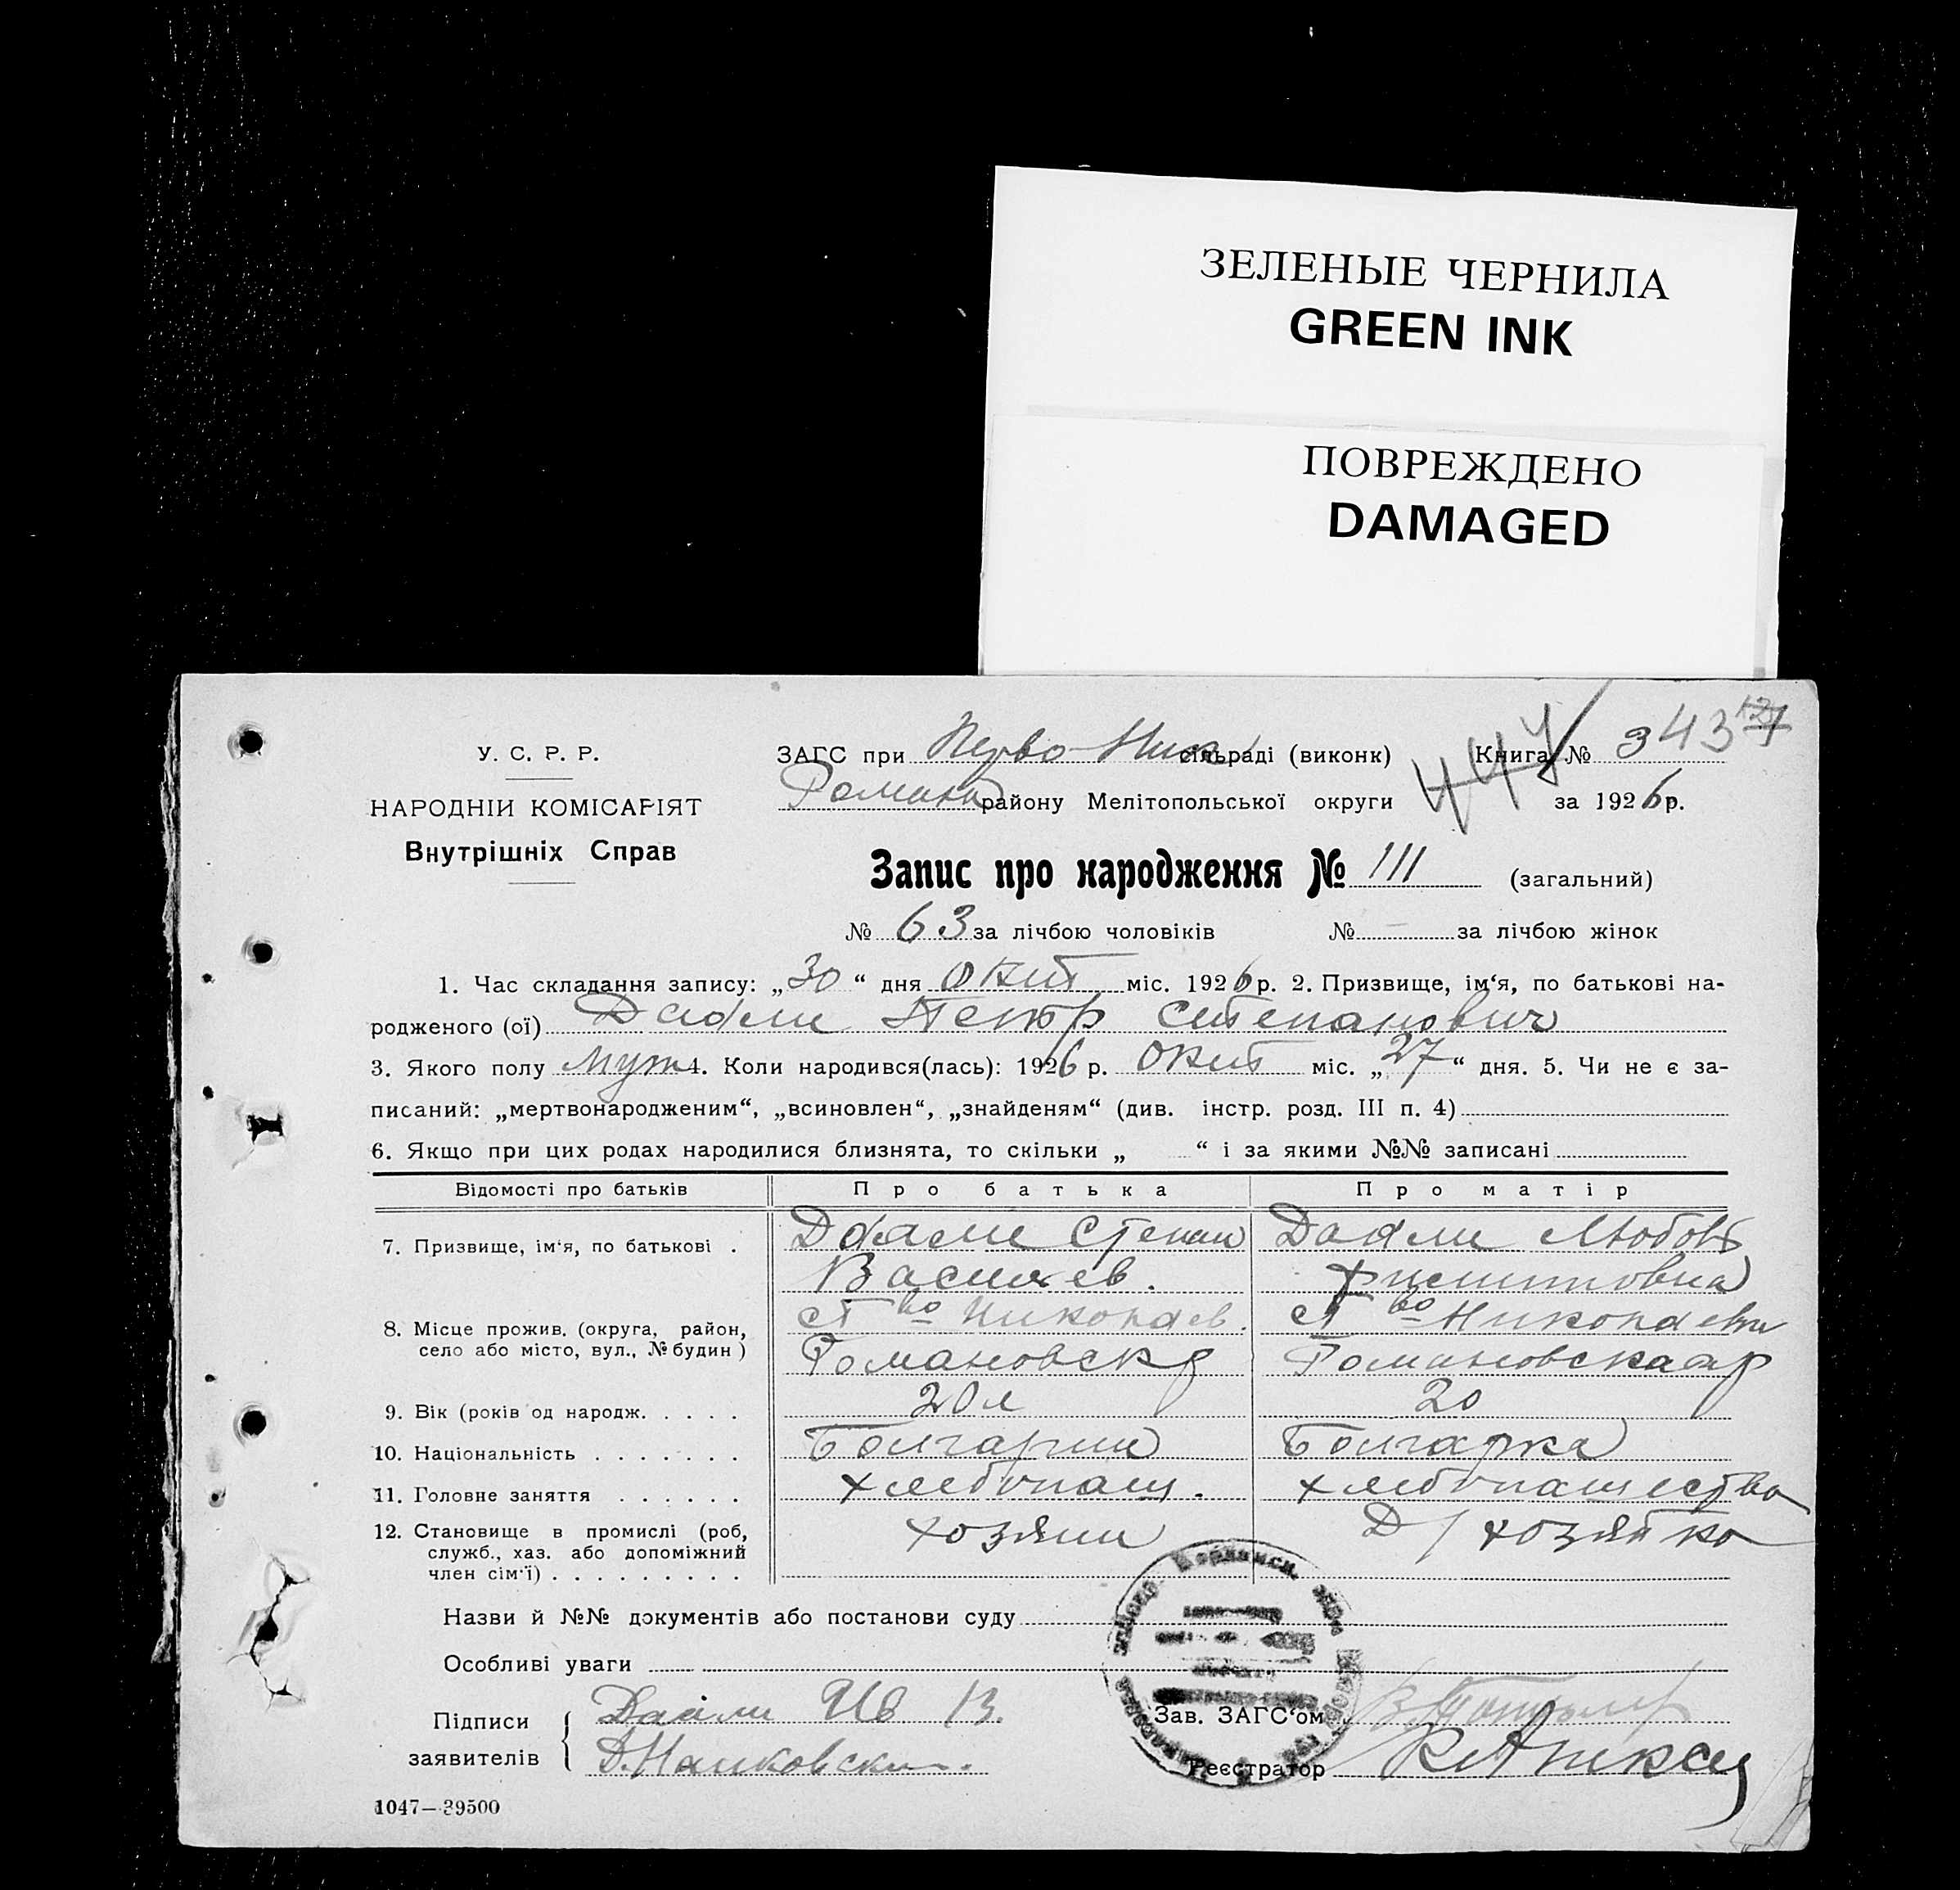 ЗЕЛЕНЫЕ ЧЕРНИЛА
GREEN INK
ПОВРЕЖДЕНО
DAMAGED
У. С. Р. Р.
НАРОДНІЙ КОМІСАРІЯТ
Внутрішніх Справ
ЗАГС при Перво-Ник сільраді (виконк) Книга № 343
Роман району Мелітопольської округи за 1926 р.
Запис про народження № 111 (загальний)
№ 63 за лічбою чоловіків № - за лічбою жінок
1. Час складання запису: „30“ дня Окт міс. 1926 р. 2. Призвище, ім‘я, по батькові на-
родженого (ої) Петр Степанович
3. Якого полу муж 4. Коли народився(лась): 1926 р. Окт міс. „27“ дня. 5. Чи не є за-
писаний: „мертвонародженим“, „всиновлен“, „знайденям“ (див. інстр. розд. III п. 4)
6. Якщо при цих родах народилися близнята, то скільки „ “ і за якими №№ записані
Відомості про батьків Про батька Про матір
7. Призвище, ім‘я, по батькові . Степан Любовь
Васильев. Филипповна
8. Місце прожив. (округа, район, село або місто, вул., № будин) П во Николаев. П во Николаевка
Романовск р Романовская р
9. Вік (років од народж. . . . . 20 л 20
10. Національність . . . . . . . Болгарин Болгарка
11. Головне заняття . . . . . . хлебопащ. хлебопашество
12. Становище в промислі (роб, служб., хаз. або допоміжний член сім‘ї) . . . . . . . . . хозяин Д/хозяйка
Назви й №№ документів або постанови суду
Особливі уваги
Підписи заявителів
Зав. ЗАГС‘ом
Реєстратор
1047—39500